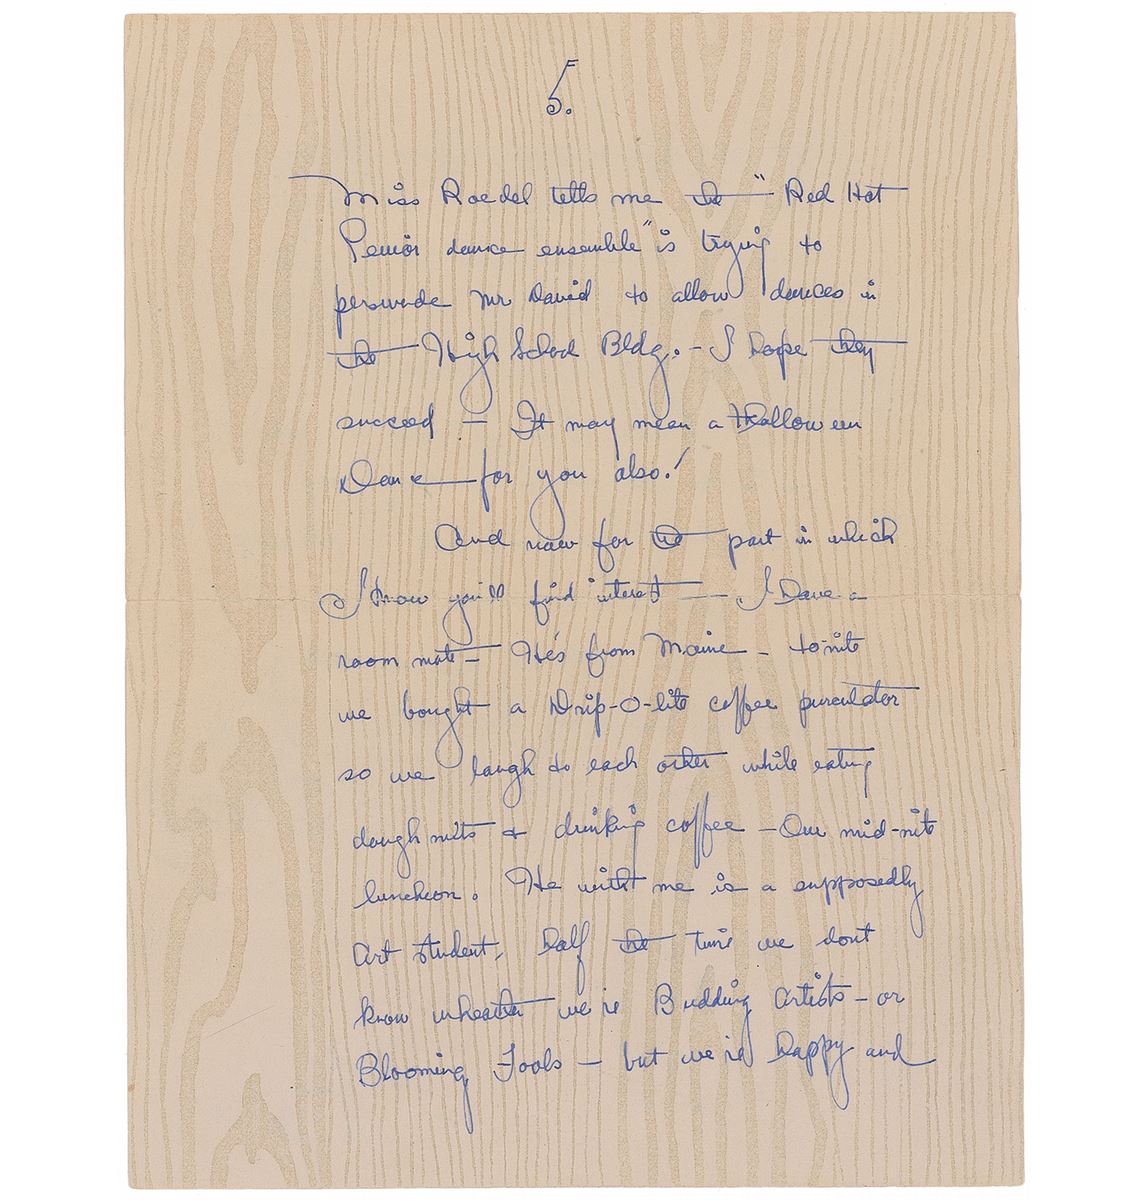 5.
Miss Roedel tells me the "Red Hot
Penior dance ensemble" is trying to
perswade Mr David to allow dances in
the High School Bldg. - I hope they
succeed - It may mean a Halloween
Dance for you also!
And now for the part in which
I know you'll find interest - I have a
room mate - He's from Maine - tonite
we bought a Drip-O-lite coffee purculator
so we laugh to each other while eating
doughnuts & drinking coffee - Our mid-nite
luncheon. He with me is a supposedly
Art Student, half the time we dont
know wheather we're Budding Artists - or
Blooming Fools - but we're happy and